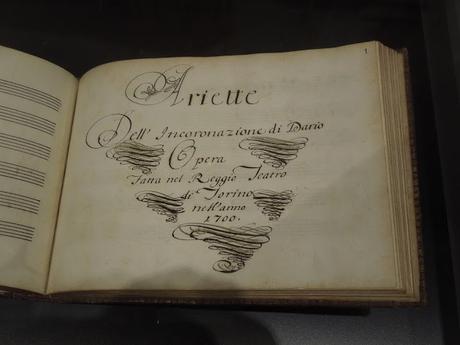 1
Ariette
Dell' Incoronazione di Dario
Opera
Fatta nel Reggio Teatro
di Torino
nell'anno
1700.